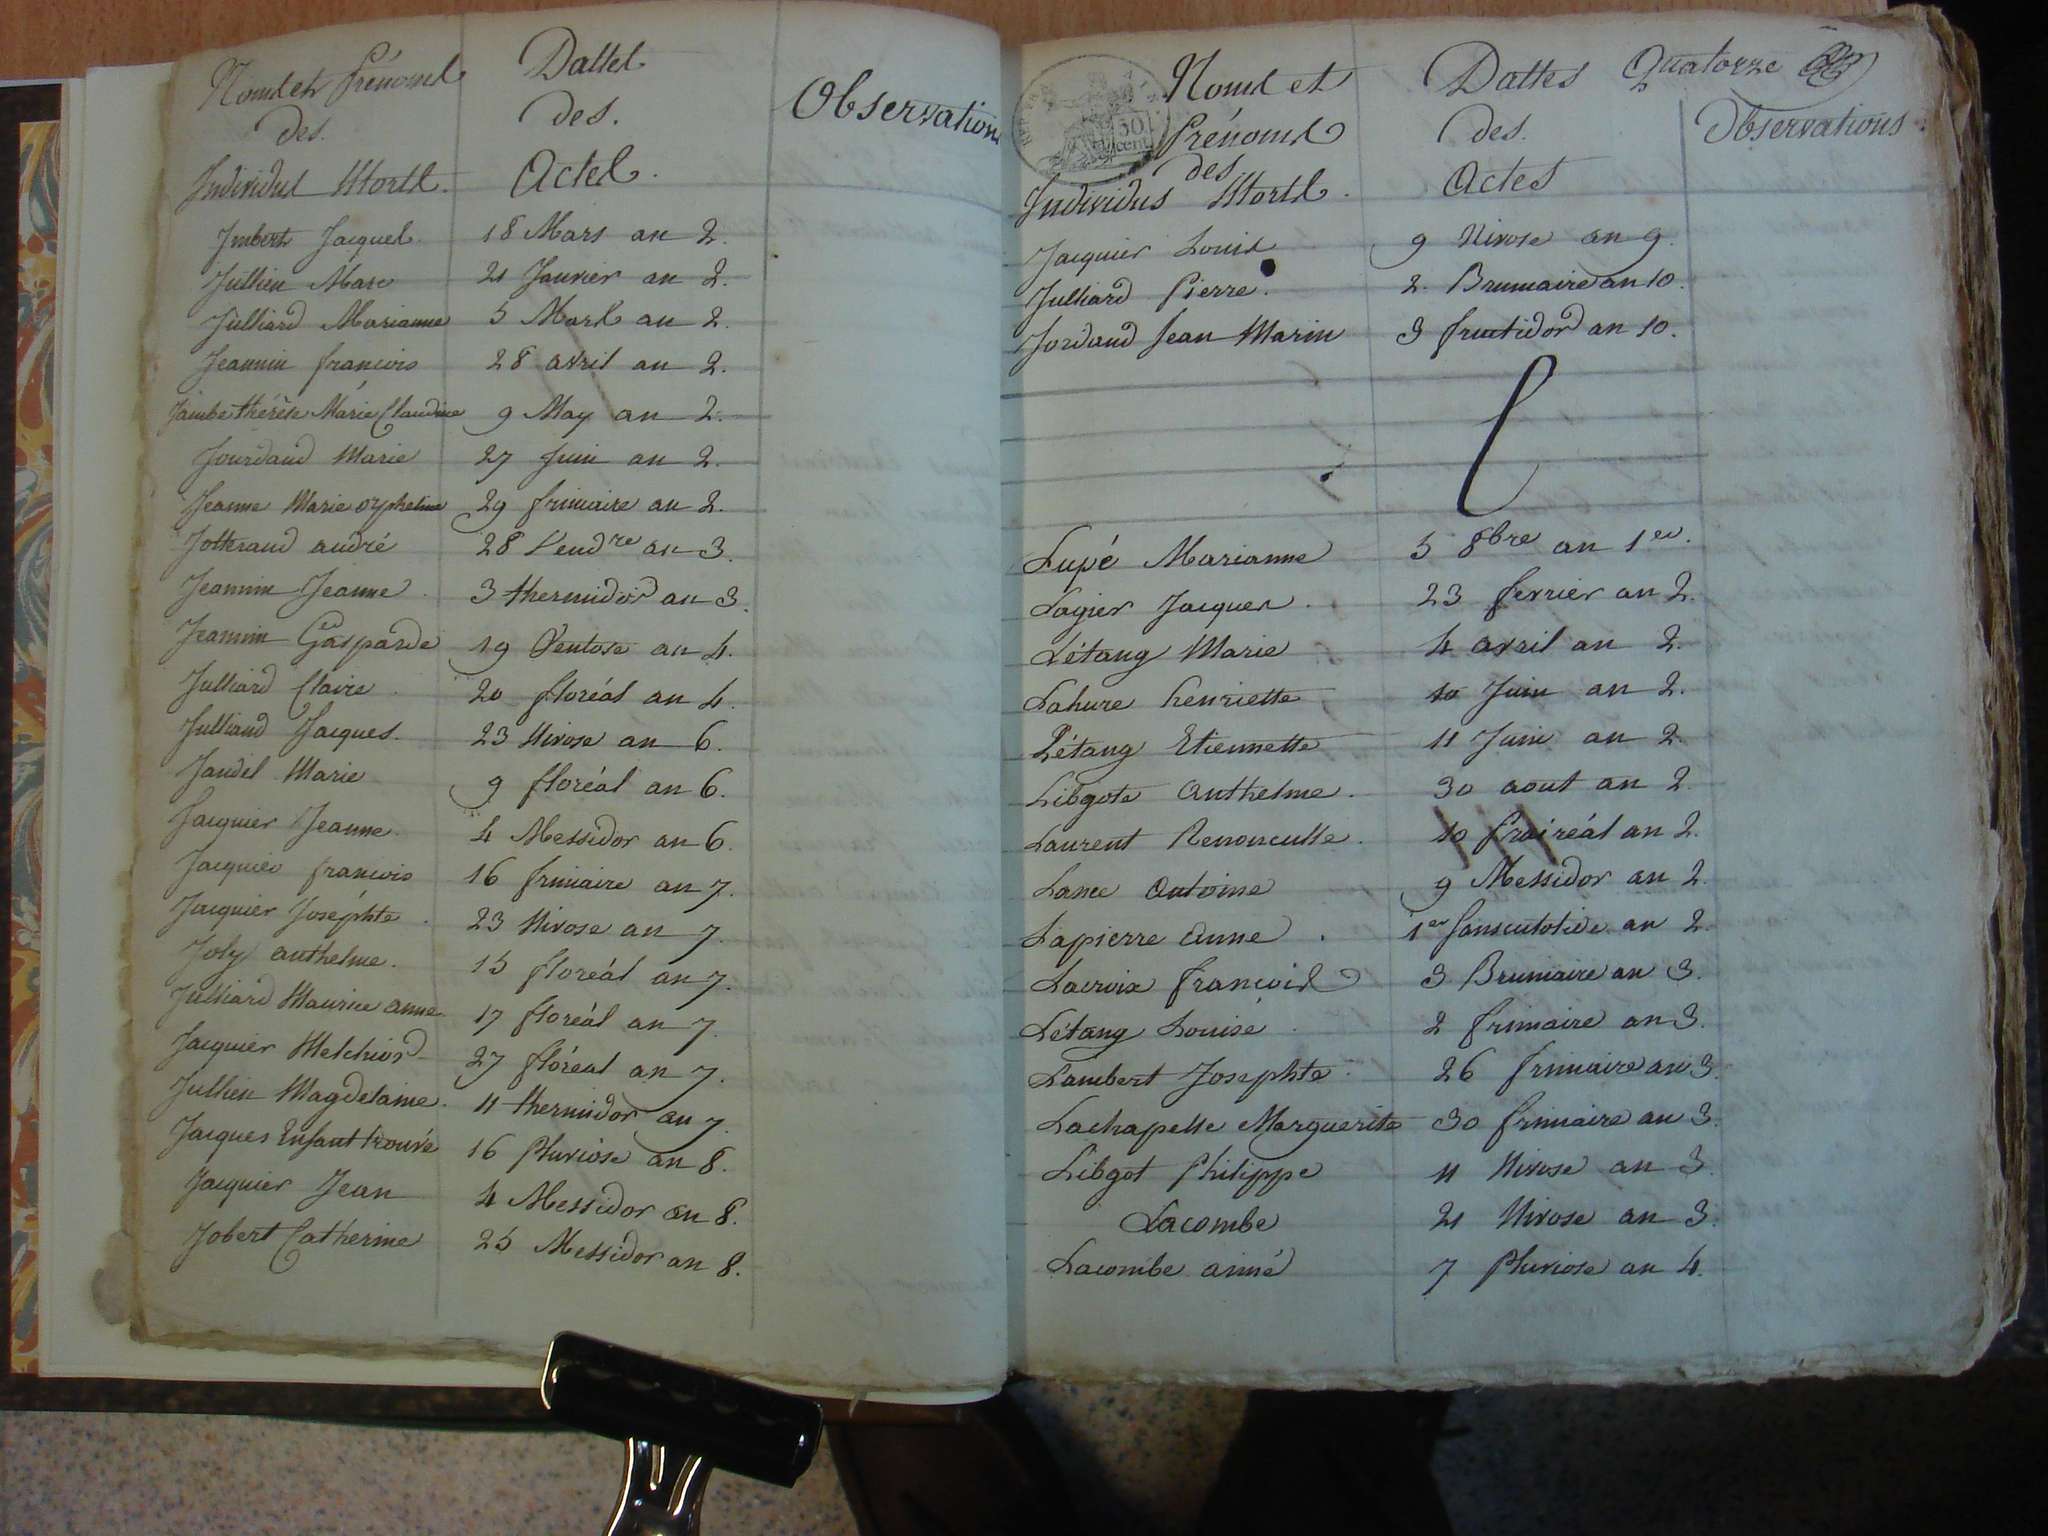 Noms et Prénoms
des
Individus Morts.
Dattes
des.
Actes.
Observations
Imbert Jacques 18 Mars an 2.
Jullien Marc 21 Janvier an 2.
Julliard Marianne 5 Mars an 2.
Jeannin françois 28 avril an 2.
Jambe thérèse Marie Claudine 9 May an 2.
Jourdand Marie 27 Juin an 2.
Jeanne Marie orpheline 29 frimaire an 2.
Jolteraud andré 28 Vendre an 3.
Jeannin Jeanne. 3 thermidor an 3.
Jeannin Gasparde 19 Ventose an 4.
Julliard Claire. 20 floréal an 4.
Julliand Jacques. 23 Nivose an 6.
Jandel Marie 9 floréal an 6.
Jacquier Jeanne. 4 Messidor an 6.
Jacquier françois 16 frimaire an 7.
Jacquier Joséphte. 23 Nivose an 7.
Joly anthelme. 15 floréal an 7.
Julliard Maurice anne. 17 floréal an 7.
Jacquier Melchior 27 floréal an 7.
Jullien Magdelaine. 11 thermidor an 7.
Jacques Enfant trouvé 16 Pluviose an 8.
Jacquier Jean 4 Messidor an 8.
Jobert Catherine 25 Messidor an 8.
Quatorze
Noms et
Prénoms
des
Individus Morts.
Dattes
des.
Actes
Observations
30
cent
Jacquier Louis 9 Nivose an 9.
Julliard Pierre. 2. Brumaire an 10.
Jordand Jean Marin 3 fructidor an 10.
L
Lupé Marianne 5 8bre an 1er.
Lagier Jacques. 23 fevrier an 2.
Létang Marie 4 avril an 2.
Lahure henriette 10 Juin an 2.
Létang Etiennette 11 Juin an 2.
Libgote Anthelme. 30 aout an 2.
Laurent Renonculle. 10 Praireál an 2.
Lance Antoine 9 Messidor an 2.
Lapierre Anne. 1er Sansculotide an 2.
Lacroix françois 3 Brumaire an 3.
Létang Louise. 2 frimaire an 3.
Lambert Josephte. 26 frimaire an 3.
Lachapelle Marguerite 30 frimaire an 3.
Libgot Philippe 11 Nivose an 3.
Lacombe 21 Nivose an 3.
Lacombe aimé 7 Pluviose an 4.